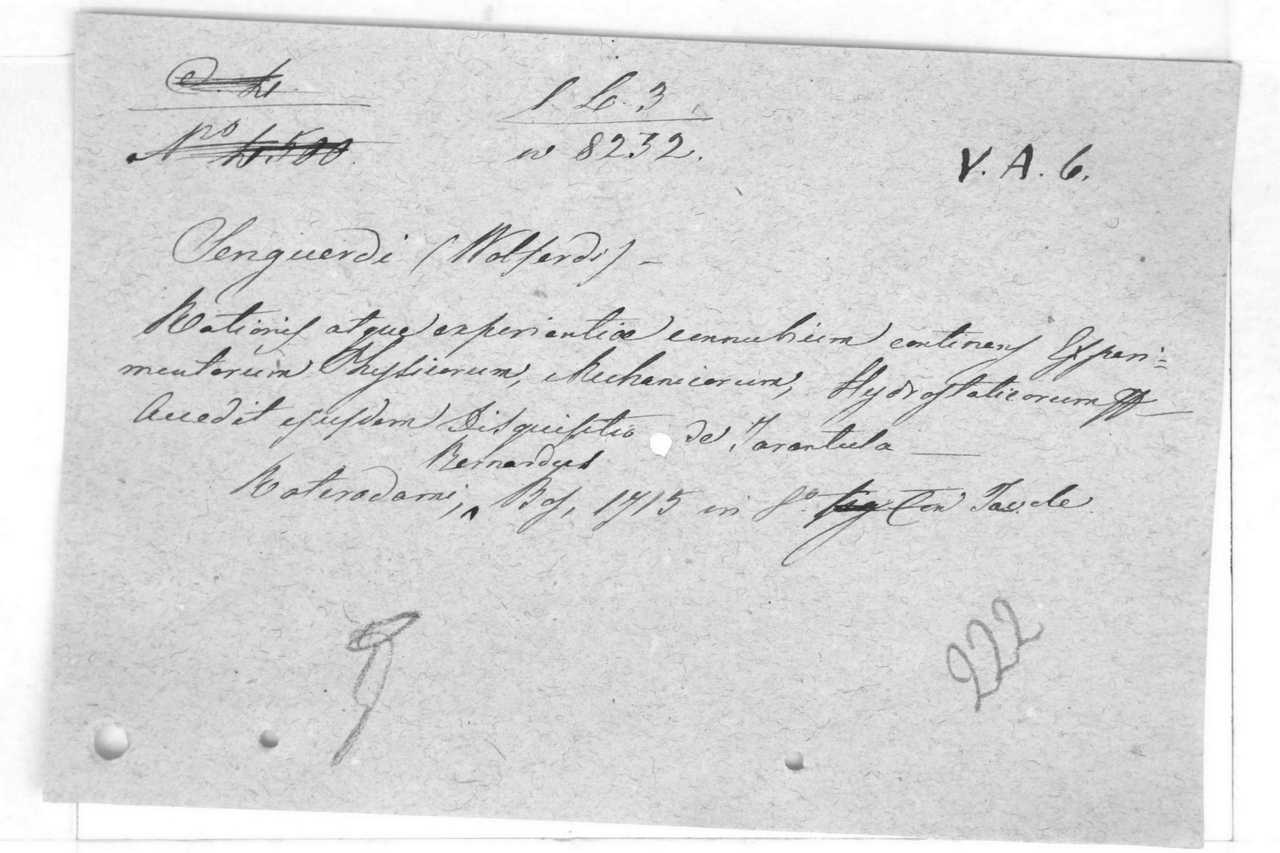 N.º 4.500
l L. 3
n 8232.
V. A. 6.
Senguerdi (Wolferdi) –
Rationis atque experientiæ connubium continens Experi=
mentorum Physicorum, Mechanicorum, Hydrostaticorum
Accedit ejusdem Disquisitio de Tarantula —
Bernardus
Roterodami, ^ Bos, 1715 in 8.º Con Tavole
222